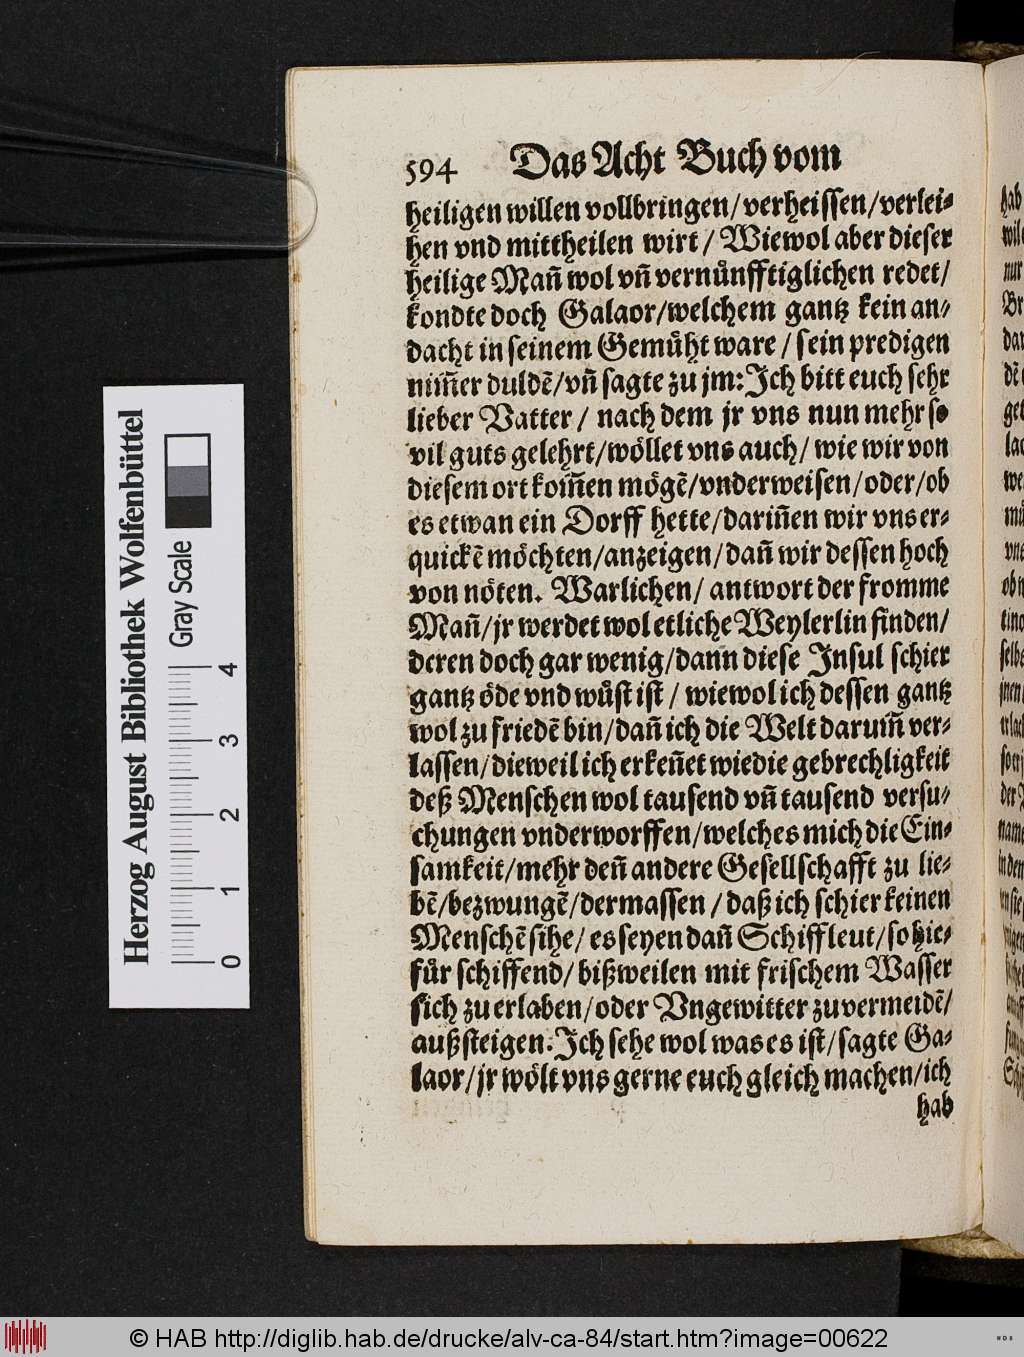 594 Das Acht Buch vom
heiligen willen vollbringen/verheissen/verlei-
hen vnd mittheilen wirt/ Wiewol aber dieser
heilige Mañ wol vñ vernůnfftiglichen redet/
kondte doch Galaor/welchem gantz kein an-
dacht in seinem Gemůht ware/ sein predigen
nim̃er duldẽ/vñ sagte zu jm: Ich bitt euch sehr
lieber Vatter/ nach dem jr vns nun mehr so
vil guts gelehrt/wöllet vns auch/ wie wir von
diesem ort kom̃en mögẽ/vnderweisen/oder/ob
es etwan ein Dorff hette/dariñen wir vns er-
quickẽ möchten/anzeigen/dañ wir dessen hoch
von nöten. Warlichen/ antwort der fromme
Mañ/jr werdet wol etliche Weylerlin finden/
deren doch gar wenig/dann diese Insul schier
gantz öde vnd wůst ist/ wiewol ich dessen gantz
wol zu friedẽ bin/dañ ich die Welt darum̃ ver-
lassen/dieweil ich erkeñet wie die gebrechligkeit
deß Menschen wol tausend vñ tausend versu-
chungen vnderworffen/welches mich die Ein-
samkeit/mehr deñ andere Gesellschafft zu lie-
bẽ/bezwungẽ/dermassen/daß ich schier keinen
Menschẽ sihe/ es seyen dañ Schiffleut/so hie-
fůr schiffend/ bißweilen mit frischem Wasser
sich zu erlaben/oder Vngewitter zuvermeidẽ/
außsteigen. Ich sehe wol was es ist/sagte Ga-
laor/jr wölt vns gerne euch gleich machen/ich
hab
Herzog August Bibliothek Wolfenbüttel
Gray Scale
0 1 2 3 4
© HAB http://diglib.hab.de/drucke/alv-ca-84/start.htm?image=00622